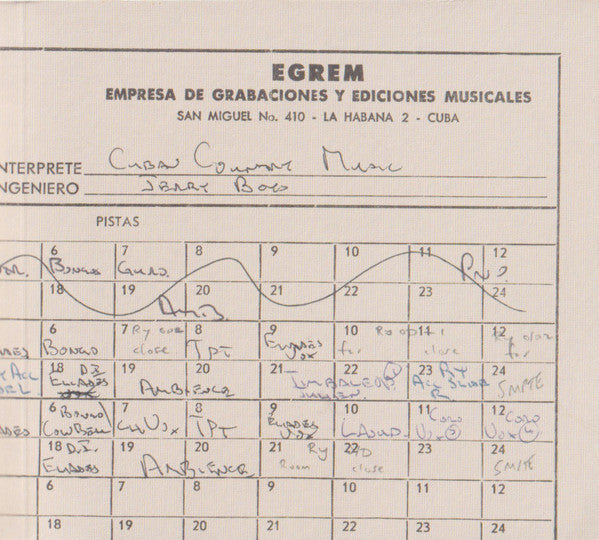 EGREM
EMPRESA DE GRABACIONES Y EDICIONES MUSICALES
SAN MIGUEL No. 410 - LA HABANA 2 - CUBA
NTERPRETE CUBAN COUNTRY MUSIC
NGENIERO JERRY BOYS
PISTAS
6 7 8 9 10 11 12
BONGO GUIRO. PNO.
18 19 20 21 22 23 24
AMB.
6 7 Ry 8 9 10 11 12
BONGO close TPT ELIADES VOX far close far
18 D.I. 19 20 21 22 23 RY 24
ELIADES AMBIENCE SMPTE
6 BONGO 7 8 9 10 11 CORO 12 CORO
COWBELL VOX TPT ELIADES VOX LAOUD VOX VOX
18 D.I. 19 20 21 Ry 22 23 24
ELIADES AMBIENCE Room close SMPTE
6 7 8 9 10 11 12
18 19 20 21 22 23 24